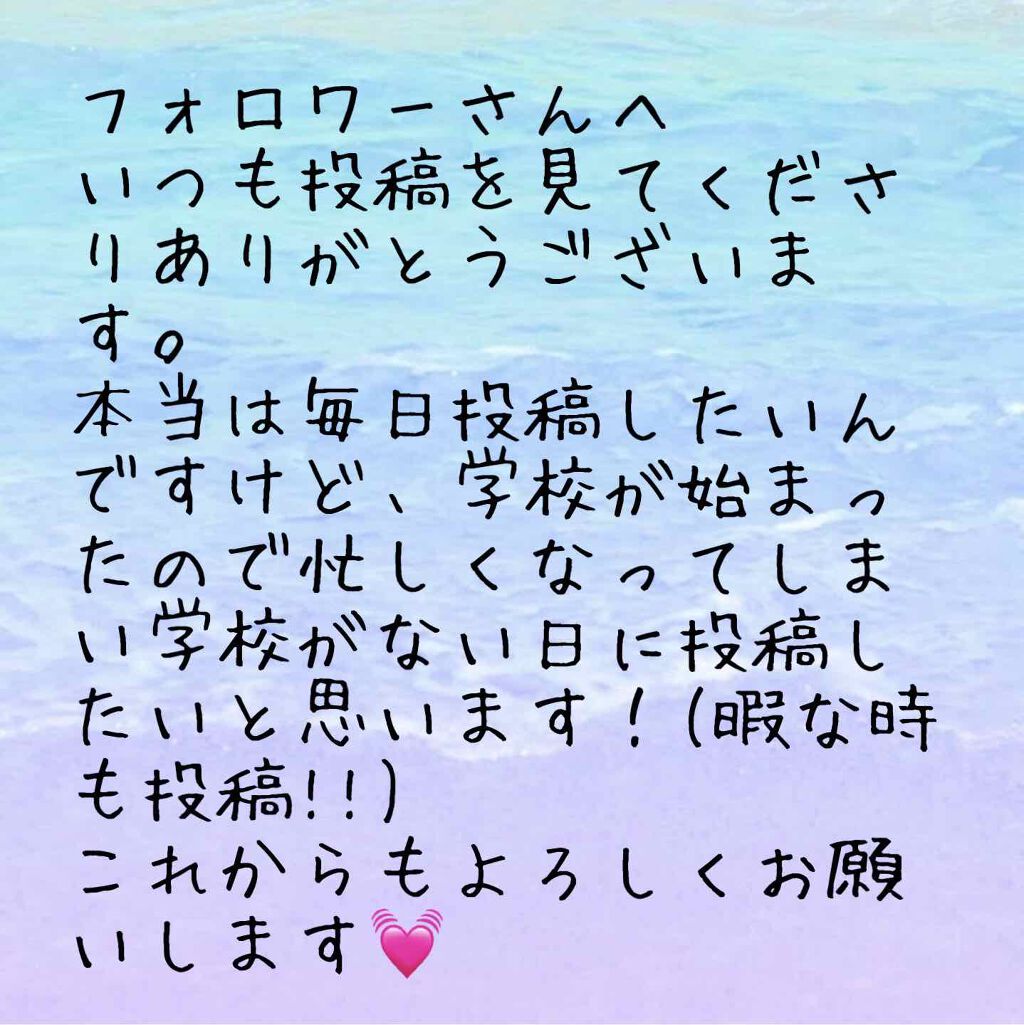 フォロワーさんへ
いつも投稿を見てくださ
りありがとうございま
す。
本当は毎日投稿したいん
ですけど、学校が始まっ
たので忙しくなってしま
い学校がない日に投稿し
たいと思います！(暇な時
も投稿!!)
これからもよろしくお願
いします💓